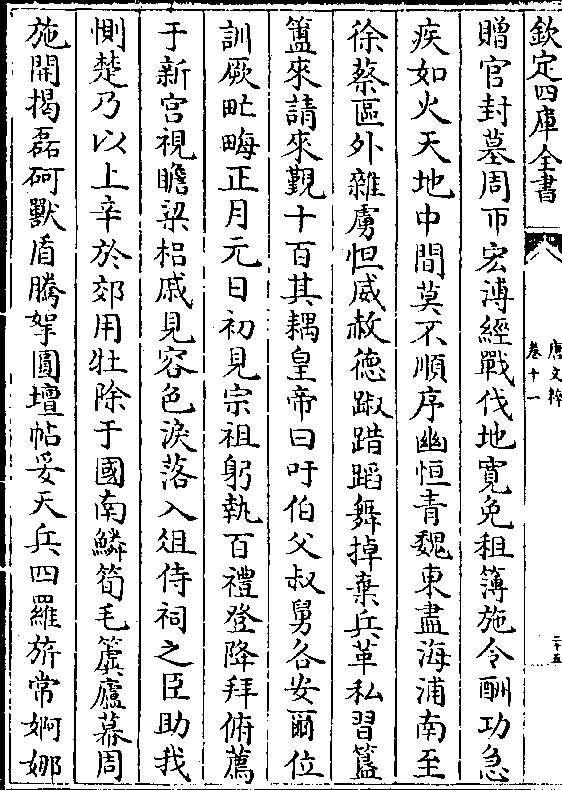 欽定四庫全書
唐文粹
卷十一
二十五
贈官封墓周帀宏溥經戰伐地寛免租簿施令酬功急
疾如火天地中間莫不順序幽恒青魏東盡海浦南至
徐蔡區外雜虜怛威赧德踧踖蹈舞掉棄兵革私習簋
簠來請來覲十百其耦皇帝曰吁伯父叔舅各安爾位
訓厥甿畮正月元日初見宗祖躬執百禮登降拜俯薦
于新宮視瞻梁梠慼見容色淚落入俎侍祠之臣助我
惻楚乃以上辛於郊用牡除于國南鱗筍毛簴廬幕周
施開揭磊砢獸盾騰拏圓壇帖妥天兵四羅旂常婀娜